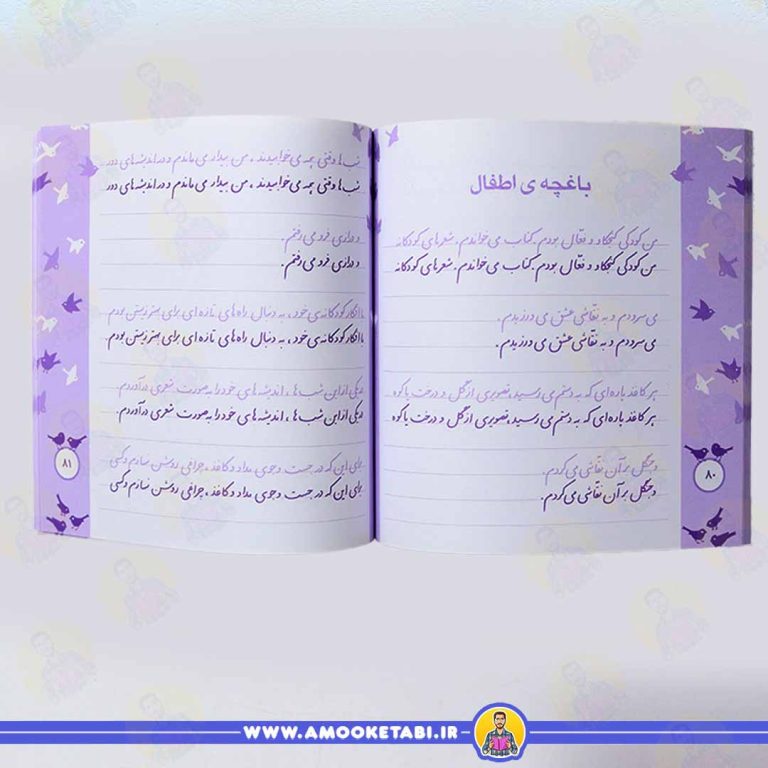 باغچه ی اطفال
من کودکی کنجکاو و فعّال بودم. کتاب می‌خواندم. شعرهای کودکانه
من کودکی کنجکاو و فعّال بودم. کتاب می‌خواندم. شعرهای کودکانه
می‌سرودم و به نقّاشی عشق می‌ورزیدم.
می‌سرودم و به نقّاشی عشق می‌ورزیدم.
هر کاغذ پاره‌ای که به دستم می‌رسید، تصویری از گل و درخت یا کوه
هر کاغذ پاره‌ای که به دستم می‌رسید، تصویری از گل و درخت یا کوه
و جنگل بر آن نقّاشی می‌کردم.
و جنگل بر آن نقّاشی می‌کردم.
۸۰
شب‌ها وقتی همه می‌خوابیدند، من بیدار می‌ماندم و در اندیشه‌های دور
شب‌ها وقتی همه می‌خوابیدند، من بیدار می‌ماندم و در اندیشه‌های دور
و درازی فرو می‌رفتم.
و درازی فرو می‌رفتم.
با افکار کودکانه‌ی خود، به دنبال راه‌های تازه‌ای برای بهتر زیستن بودم
با افکار کودکانه‌ی خود، به دنبال راه‌های تازه‌ای برای بهتر زیستن بودم
در یکی از این شب‌ها، اندیشه‌های خود را به صورت شعری در آوردم.
در یکی از این شب‌ها، اندیشه‌های خود را به صورت شعری در آوردم.
برای این که در جست و جوی مداد و کاغذ، چراغی روشن نسازم و کسی
برای این که در جست و جوی مداد و کاغذ، چراغی روشن نسازم و کسی
۸۱
WWW.AMOOKETABI.IR